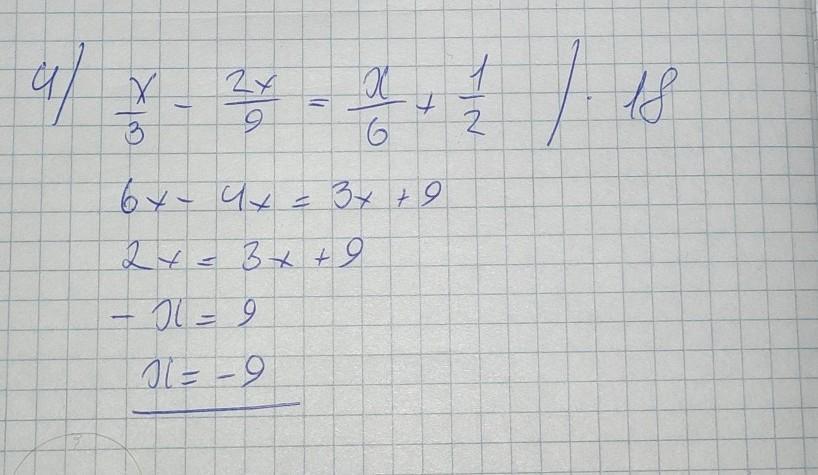 4) x/3 - 2x/9 = x/6 + 1/2 /· 18
6x - 4x = 3x + 9
2x = 3x + 9
- x = 9
x = -9